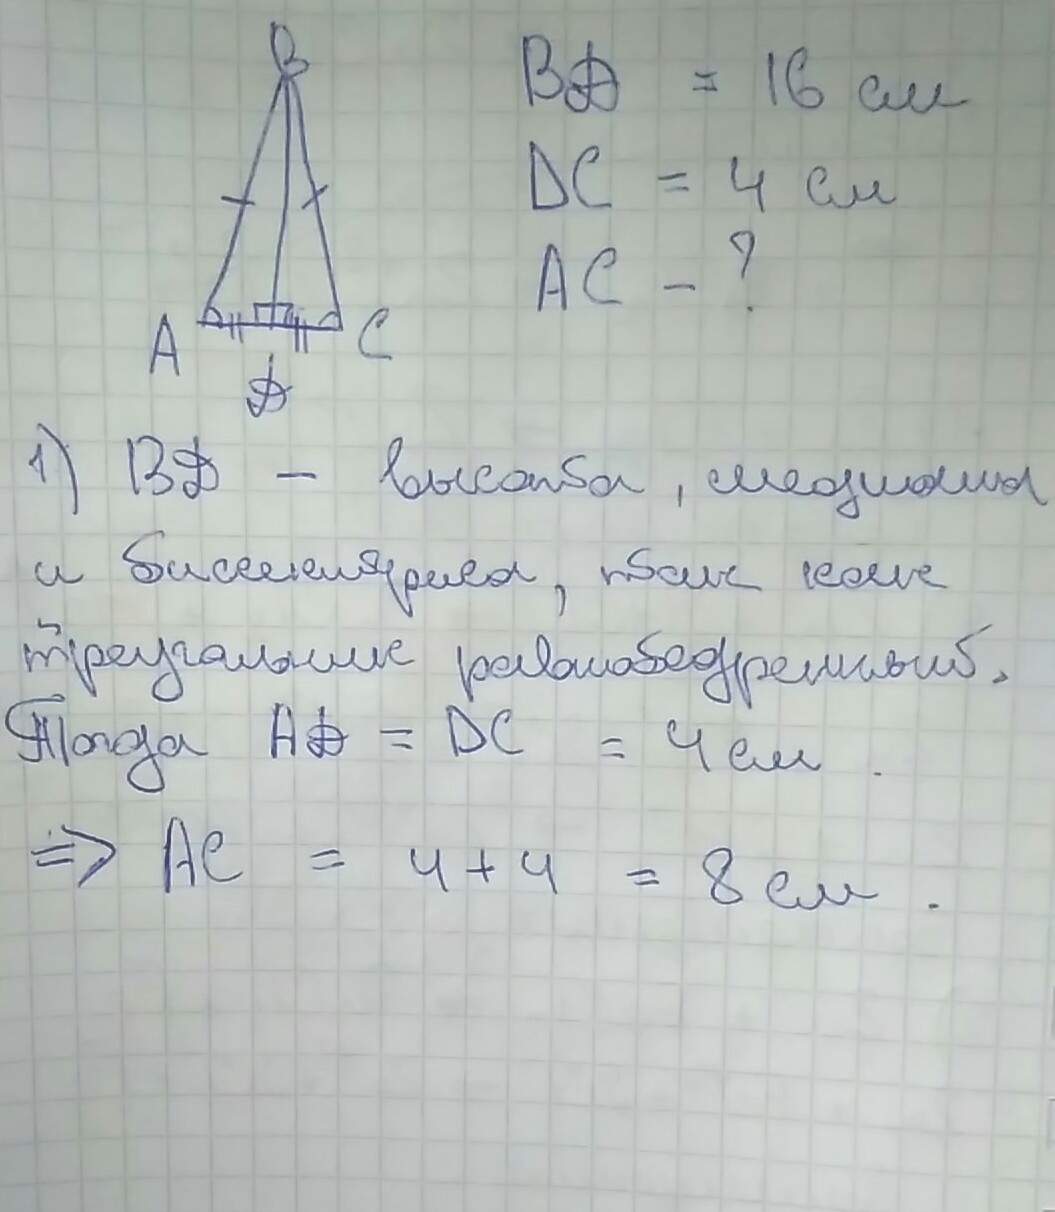 B
BD = 16 см
DC = 4 см
AC - ?
A
C
D
1) BD - высота, медиана
и биссектриса, так как
треугольник равнобедренный.
Тогда AD = DC = 4 см.
=> AC = 4 + 4 = 8 см.